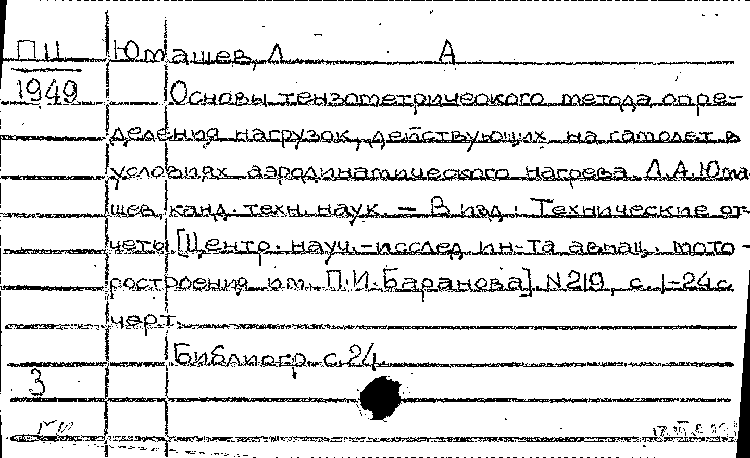 ПЦ Юташев, Л А
1949 Основы тензометрического метода опре-
деления нагрузок, действующих на самолет в
условиях аэродинамического нагрева. Л.А.Юта
шев, канд. техн. наук. — В изд.: Технические от
четы [Центр. науч.-исслед ин-та авиац. мото-
ростроения им. П.И.Баранова]. N219, с. 1-24 с
черт.
Библиогр. с.24.
3